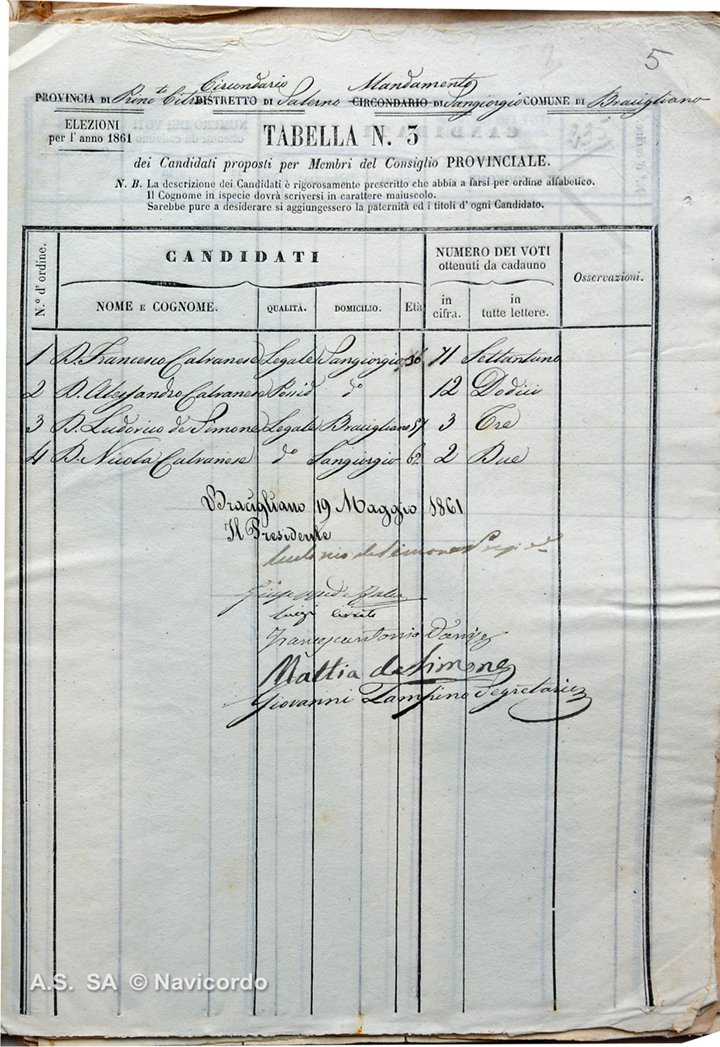 5
Circundario Mandamento
PROVINCIA DI Princ.to Citra DISTRETTO DI Salerno CIRCONDARIO DI Sangiorgio COMUNE DI Bracigliano
ELEZIONI
per l'anno 1861
TABELLA N. 3
dei Candidati proposti per Membri del Consiglio PROVINCIALE.
N. B. La descrizione dei Candidati è rigorosamente prescritto che abbia a farsi per ordine alfabetico.
Il Cognome in ispecie dovrà scriversi in carattere maiuscolo.
Sarebbe pure a desiderare si aggiungessero la paternità ed i titoli d'ogni Candidato.
N.º d'ordine. CANDIDATI NUMERO DEI VOTI
ottenuti da cadauno Osservazioni.
NOME E COGNOME. QUALITÀ. DOMICILIO. Età in
cifra. in
tutte lettere.
1 D. Francesco Calvanese Legale Sangiorgio 36 71 Settantuno
2 D. Alessandro Calvanese Possid d.o 12 Dodici
3 D. Ludovico de Simone Legale Bracigliano 57 3 Tre
4 D. Nicola Calvanese d.o Sangiorgio 62 2 Due
Bracigliano 19 Maggio 1861
Il Presidente
de Simone
Luigi
Francescantonio Danise
Mattia de Simone
Giovanni Zampino Segretario
A.S. SA © Navicordo